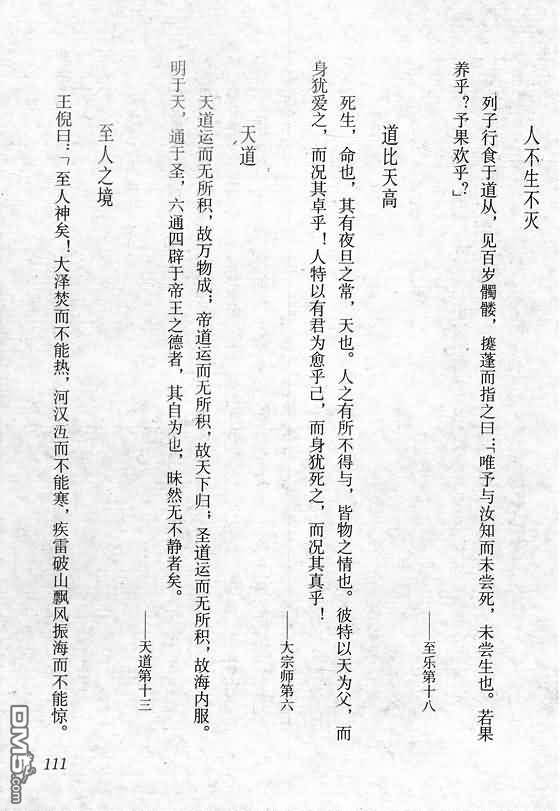 人不生不灭
列子行食于道从，见百岁髑髅，攓蓬而指之曰：“唯予与汝知而未尝死，未尝生也。若果
养乎？予果欢乎？”
——至乐第十八
道比天高
死生，命也，其有夜旦之常，天也。人之有所不得与，皆物之情也。彼特以天为父，而
身犹爱之，而况其卓乎！人特以有君为愈乎己，而身犹死之，而况其真乎！
——大宗师第六
天道
天道运而无所积，故万物成；帝道运而无所积，故天下归；圣道运而无所积，故海内服。
明于天，通于圣，六通四辟于帝王之德者，其自为也，昧然无不静者矣。
——天道第十三
至人之境
王倪曰：“至人神矣！大泽焚而不能热，河汉沍而不能寒，疾雷破山飘风振海而不能惊。
111
DM5.com